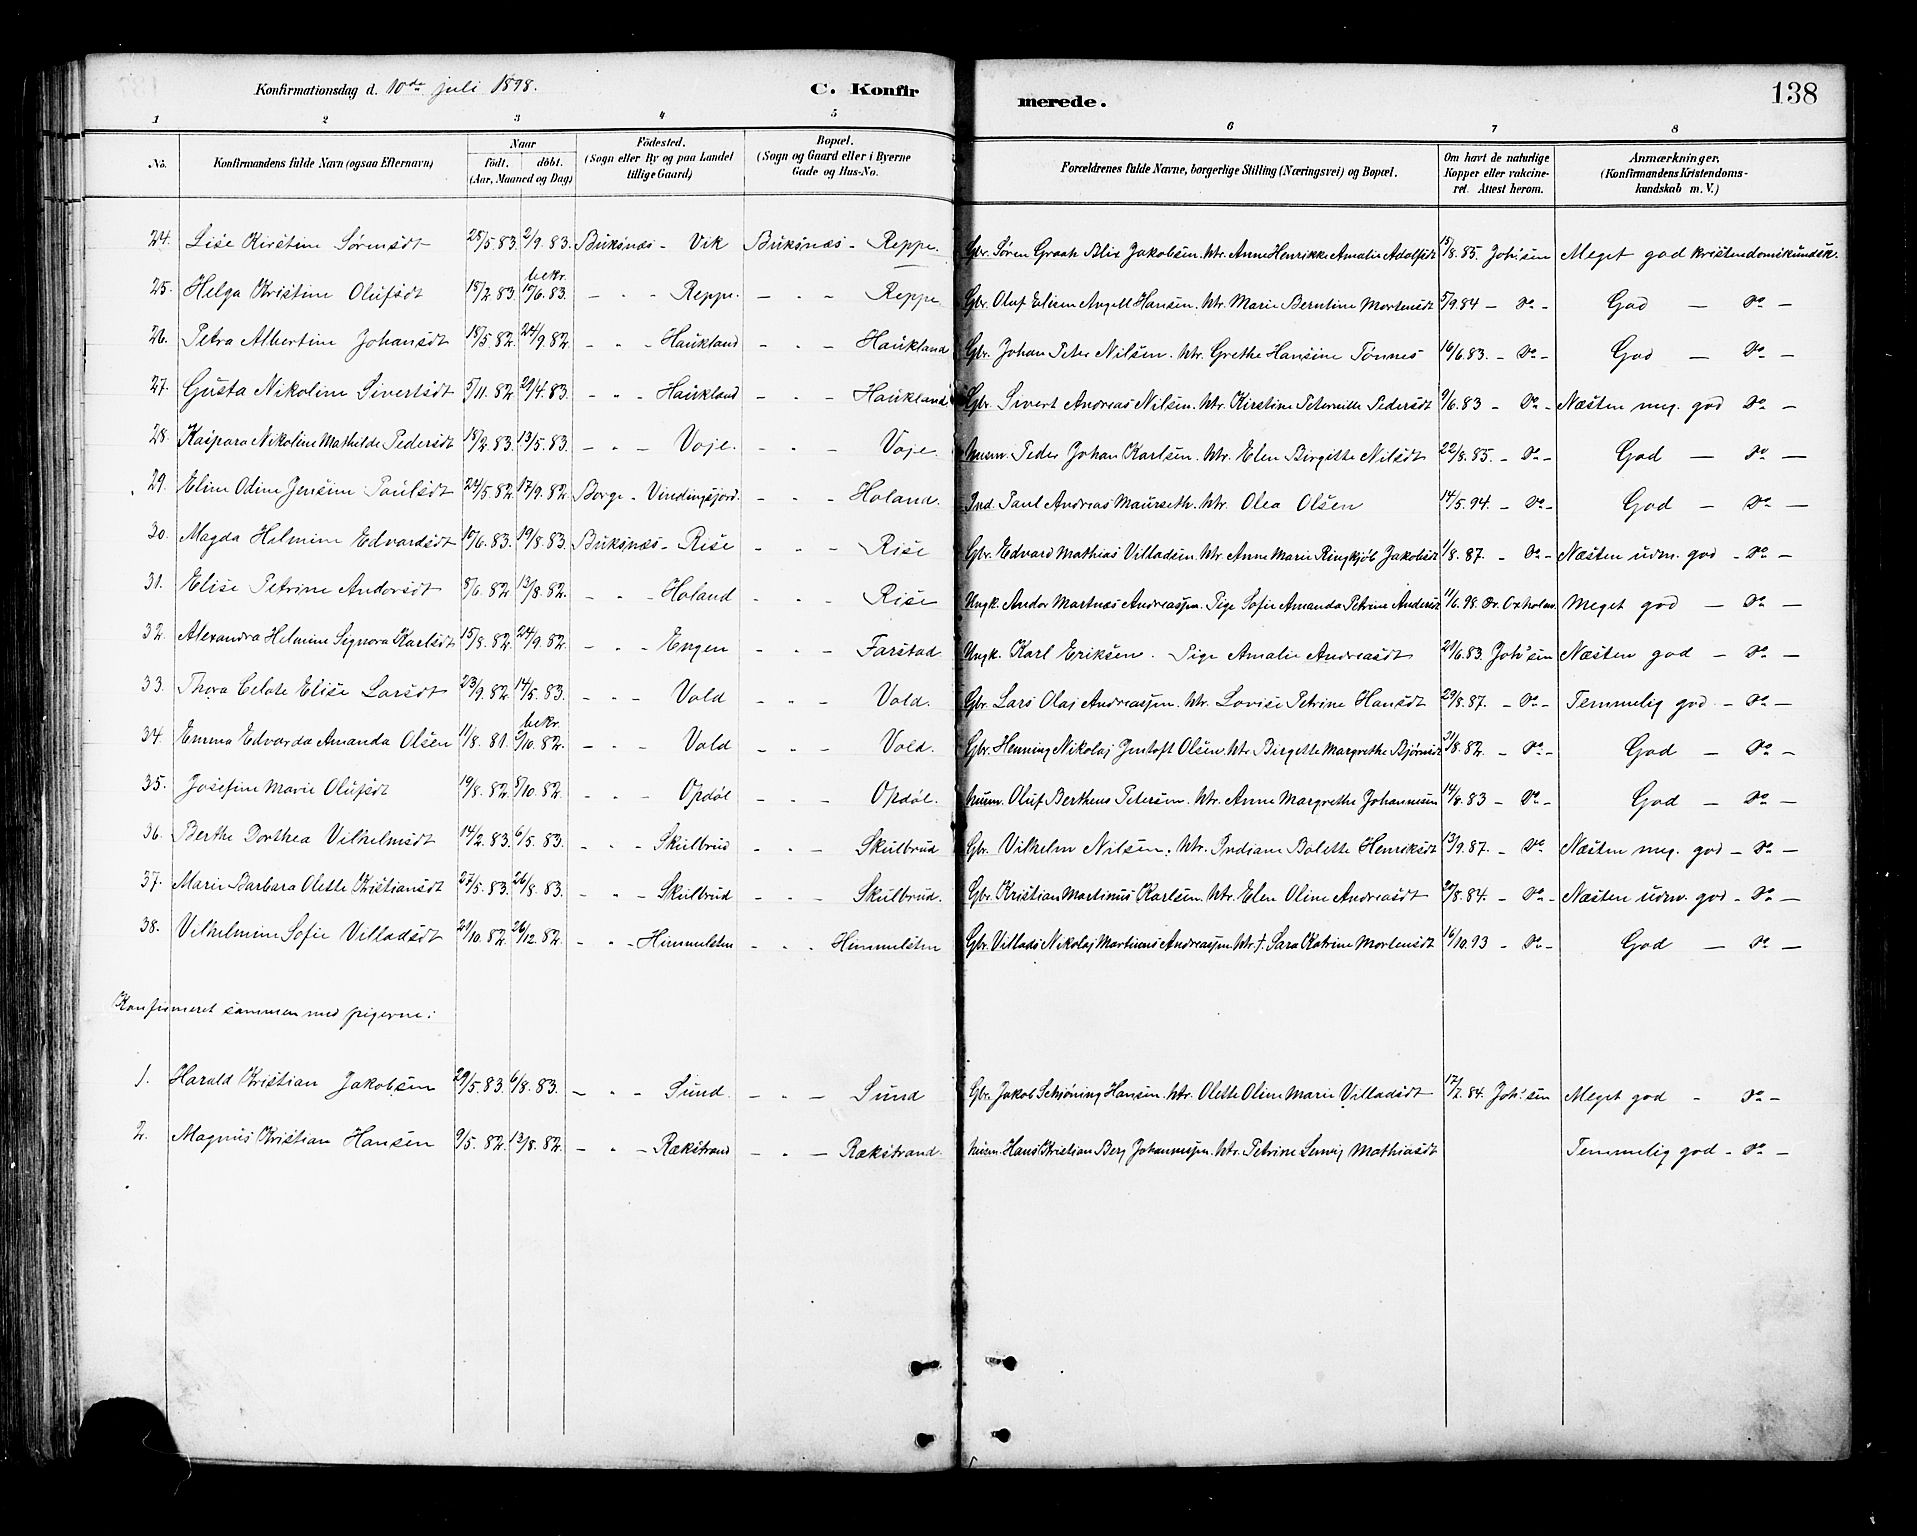 Konfirmationsdag d. 10de juli 1898. C. Konfir merede. 138
1 2 3 4 5 6 7 8
No. Konfirmandens fulde Navn (ogsaa Efternavn) Naar födt. döbt. (Aar, Maaned og Dag) Födested. (Sogn eller By og paa Landet tillige Gaard) Bopæl. (Sogn og Gaard eller i Byerne Gade og Hus-No. Forældrenes fulde Navne, borgerlige Stilling (Næringsvei) og Bopæl. Om havt de naturlige Kopper eller vakcineret. Attest herom. Anmærkninger, (Konfirmandens Kristendomskundskab m. V.)
24. Lise Kirstine Sørensdt 28/5.83. 2/9.83. Buksnæs - Vik Buksnæs - Reppe. Gbr. Søren Graah Blix Jakobsen. Htr. Anne Henrikke Amalie Adolfsdt 15/8.85. Joh.sen Meget god kristendomskundsk.
25. Helga Kristine Olufsdt 18/2.83. bekr. 17/6.83. - " - Reppe. - " - Reppe Gbr. Oluf Elisen Angell Hansen. Htr. Marie Berntine Mortensdt 5/9.84 - Do - God - Do -
26. Petra Albertine Johansdt 18/5.82. 24/9.82. - " - Haukland - " - Haukland Gbr. Johan Peter Nilsen. Htr. Grethe Hansine Tønnes 16/6.83. - Do - God - Do -
27. Gusta Nikoline Sivertsdt 5/11.82. 29/4.83. - " - Haukland - " - Haukland Gbr. Sivert Andreas Nilsen. Htr. Kirstine Peternille Pedersdt 9/6.83 - Do - Næsten meg. god Do -
28. Kaspara Nikoline Mathilde Pedersdt 18/2.83. 13/5.83. - " - Voje. - " - Voje Husm. Peder Johan Karlsen. Htr. Elen Birgitte Nilsdt 22/8.85. - Do - God - Do -
29. Eline Odine Jensine Paulsdt 24/5.82. 17/9.82. Borge - Vindingsjord. - " - Holand. Ind. Paul Andreas Maurseth. Htr. Olea Olsen 14/5.94. - Do - God - Do -
30. Magda Helmine Edvardsdt 15/6.83. 19/8.83. Buksnæs - Rise - " - Rise Gbr. Edvard Mathias Villadsen. Htr. Anne Marie Ringkjøb Jakobsdt 1/8.87. - Do - Næsten udm. god - Do -
31. Elise Petrine Andorsdt 8/6.82 13/8.82. - " - Holand - " - Rise Ungk. Andor Martnæs Andreassen. Pige Sofie Amanda Petrine Andersdt 11/6.98. Dr. Oxholm. Meget god - Do -
32. Alexandra Helmine Signora Karlsdt 15/8.82. 24/9.82. - " - Engen - " - Farstad Ungk. Karl Eriksen. Pige Amalie Andreasdt 29/6.83. Joh.sen Næsten god - Do -
33. Thora Celote Elise Larsdt 23/9.82. 14/5.83. - " - Vold - " - Vold. Gbr. Lars Olaj Andreassen. Htr. Lovise Petrine Hansdt 29/8.87. - Do - Temmelig god - Do -
34. Emma Edvarda Amanda Olsen 11/8.81. bekr. 9/10.82. - " - Vold - " - Vold. Gbr. Henning Nikolaj Jentoft Olsen. Htr. Birgitte Margrethe Bjørnsdt 21/8.82. - Do - God - Do -
35. Josefine Marie Olufsdt 19/8.82. 8/10.82. - " - Opdøl - " - Opdøl. Husm. Oluf Bertheus Petersen. Htr. Anne Margrethe Johannesen 14/8.83 - Do - God - Do -
36. Berthe Dorthea Vilhelmsdt 14/2.83. 6/5.83. - " - Skulbrud - " - Skulbrud Gbr. Vilhelm Nilsen. Htr. Indiane Bolette Henriksdt 13/9.87. - Do Næsten meg. god - Do -
37. Marie Barbara Olette Kristiansdt 27/5.83. 26/8.83. - " - Skulbrud - " - Skulbrud. Gbr. Kristian Martinus Karlsen. Htr. Elen Oline Andreasdt 20/8.84. - Do - Næsten udm. god - Do -
38. Vilhelmine Sofie Villadsdt 29/10.82. 26/12.82. - " - Himmelsten - " - Himmelsten Gbr. Villads Nikolaj Martinus Andreassen Htr. † Sara Katrine Mortensdt 16/10.93 - Do - God - Do -
Konfirmeret sammen med pigerne:
1. Harald Kristian Jakobsen 29/5.83. 6/8.83. - " - Sund. - " - Sund Gbr. Jakob Schjøning Hansen. Htr. Olette Oline Marie Villadsdt 17/7.84. Joh.sen Meget god - Do -
2. Magnus Kristian Hansen 9/5.82. 13/8.82. - " - Rækstrand - " - Rækstrand. Husm. Hans Kristian Berg Johannessen. Htr. Petrine Lenvig Mathiasdt Temmelig god - Do -